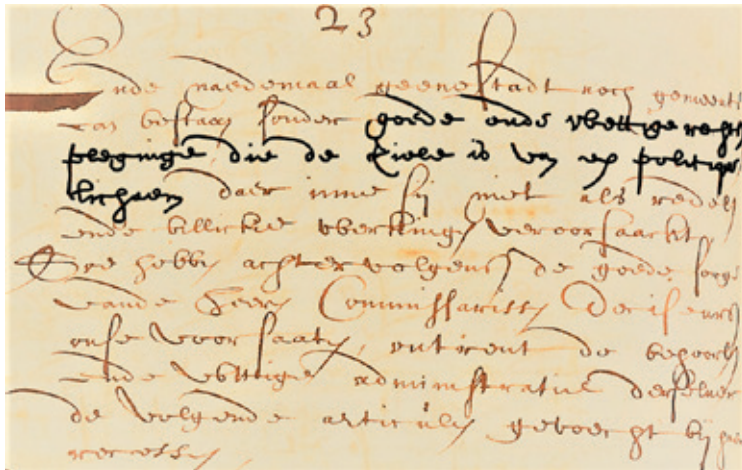 23
Ende naedemaal geene Stadt noch gemeente
can bestaen sonder goede ende wettige recht
pleginge die de Ziele is van een politiq
lichaem daer inne sij niet als redelij
ende billickie werkingen veroorsaackt,
Soo hebben achtervolgens de goede sorge
vande Heeren Commissarissen Deciseurs
onse voorsaaten, ontrent de behoorl
ende wettige administratie derselver
de volgende articulen gevoecht bij
recessen